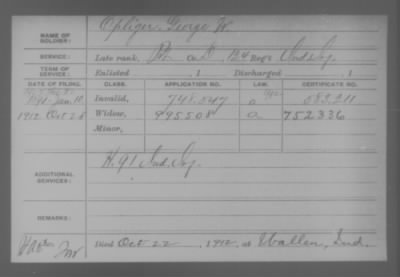 NAME OF SOLDIER: Opliger, George W.
SERVICE: Late rank, Co. D, 124 Reg't Ind. Inf.
TERM OF SERVICE: Enlisted , 1 Discharged , 1
DATE OF FILING. CLASS. APPLICATION NO. LAW. CERTIFICATE NO.
1891 Jan. 10 Invalid, 748.547
1912 Oct 28 Widow, 995508 a 752336
Minor,
ADDITIONAL SERVICES: H. 91 Ind. Inf.
REMARKS:
Died Oct 22, 1912, at Wallen, Ind.